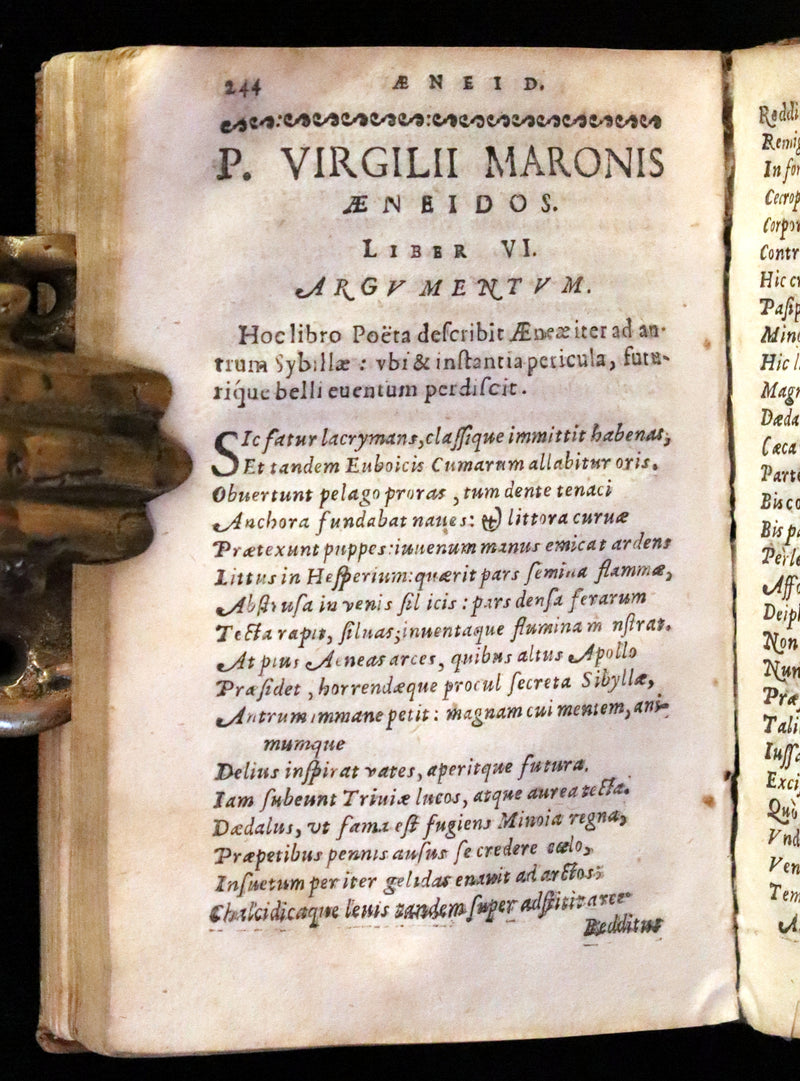 244 ÆNEID.
P. VIRGILII MARONIS
ÆNEIDOS.
LIBER VI.
ARGVMENTVM.
Hoc libro Poëta deſcribit Æneæ iter ad an-
trum Sybillæ : vbi & inſtantia pericula, futu-
rique belli euentum perdiſcit.
SIc fatur lacrymans, claſſique immittit habenas,
Et tandem Euboicis Cumarum allabitur oris.
Obuertunt pelago proras, tum dente tenaci
Anchora fundabat naues: & littora curuæ
Prætexunt puppes: iuuenum manus emicat ardens
Littus in Heſperium: quærit pars ſemina flammæ,
Abſtruſa in venis ſilicis : pars denſa ferarum
Tecta rapit, ſiluas; inuentaque flumina monſtrat.
At pius Aeneas arces, quibus altus Apollo
Præſidet, horrendæque procul ſecreta Sibyllæ,
Antrum immane petit: magnam cui mentem, ani-
mumque
Delius inſpirat vates, aperitque futura.
Iam ſubeunt Triuiæ lucos, atque aurea tecta.
Dædalus, vt fama eſt fugiens Minoia regna,
Præpetibus pennis auſus ſe credere cœlo,
Inſuetum per iter gelidas enauit ad arctos:
Chalcidicaque leuis tandem ſuper adſtitit arce
Redditus
Reddi
Remig
In for
Cecrop
Corpor
Contr
Hic cr
Paſip
Mino
Hic l
Magn
Dæda
Cæca
Parte
Bis co
Bis pa
Perle
Affo
Deiph
Non
Nun
Præ
Tali
Iuſſa
Exci
Quò
Vnd
Ven
Tem
A